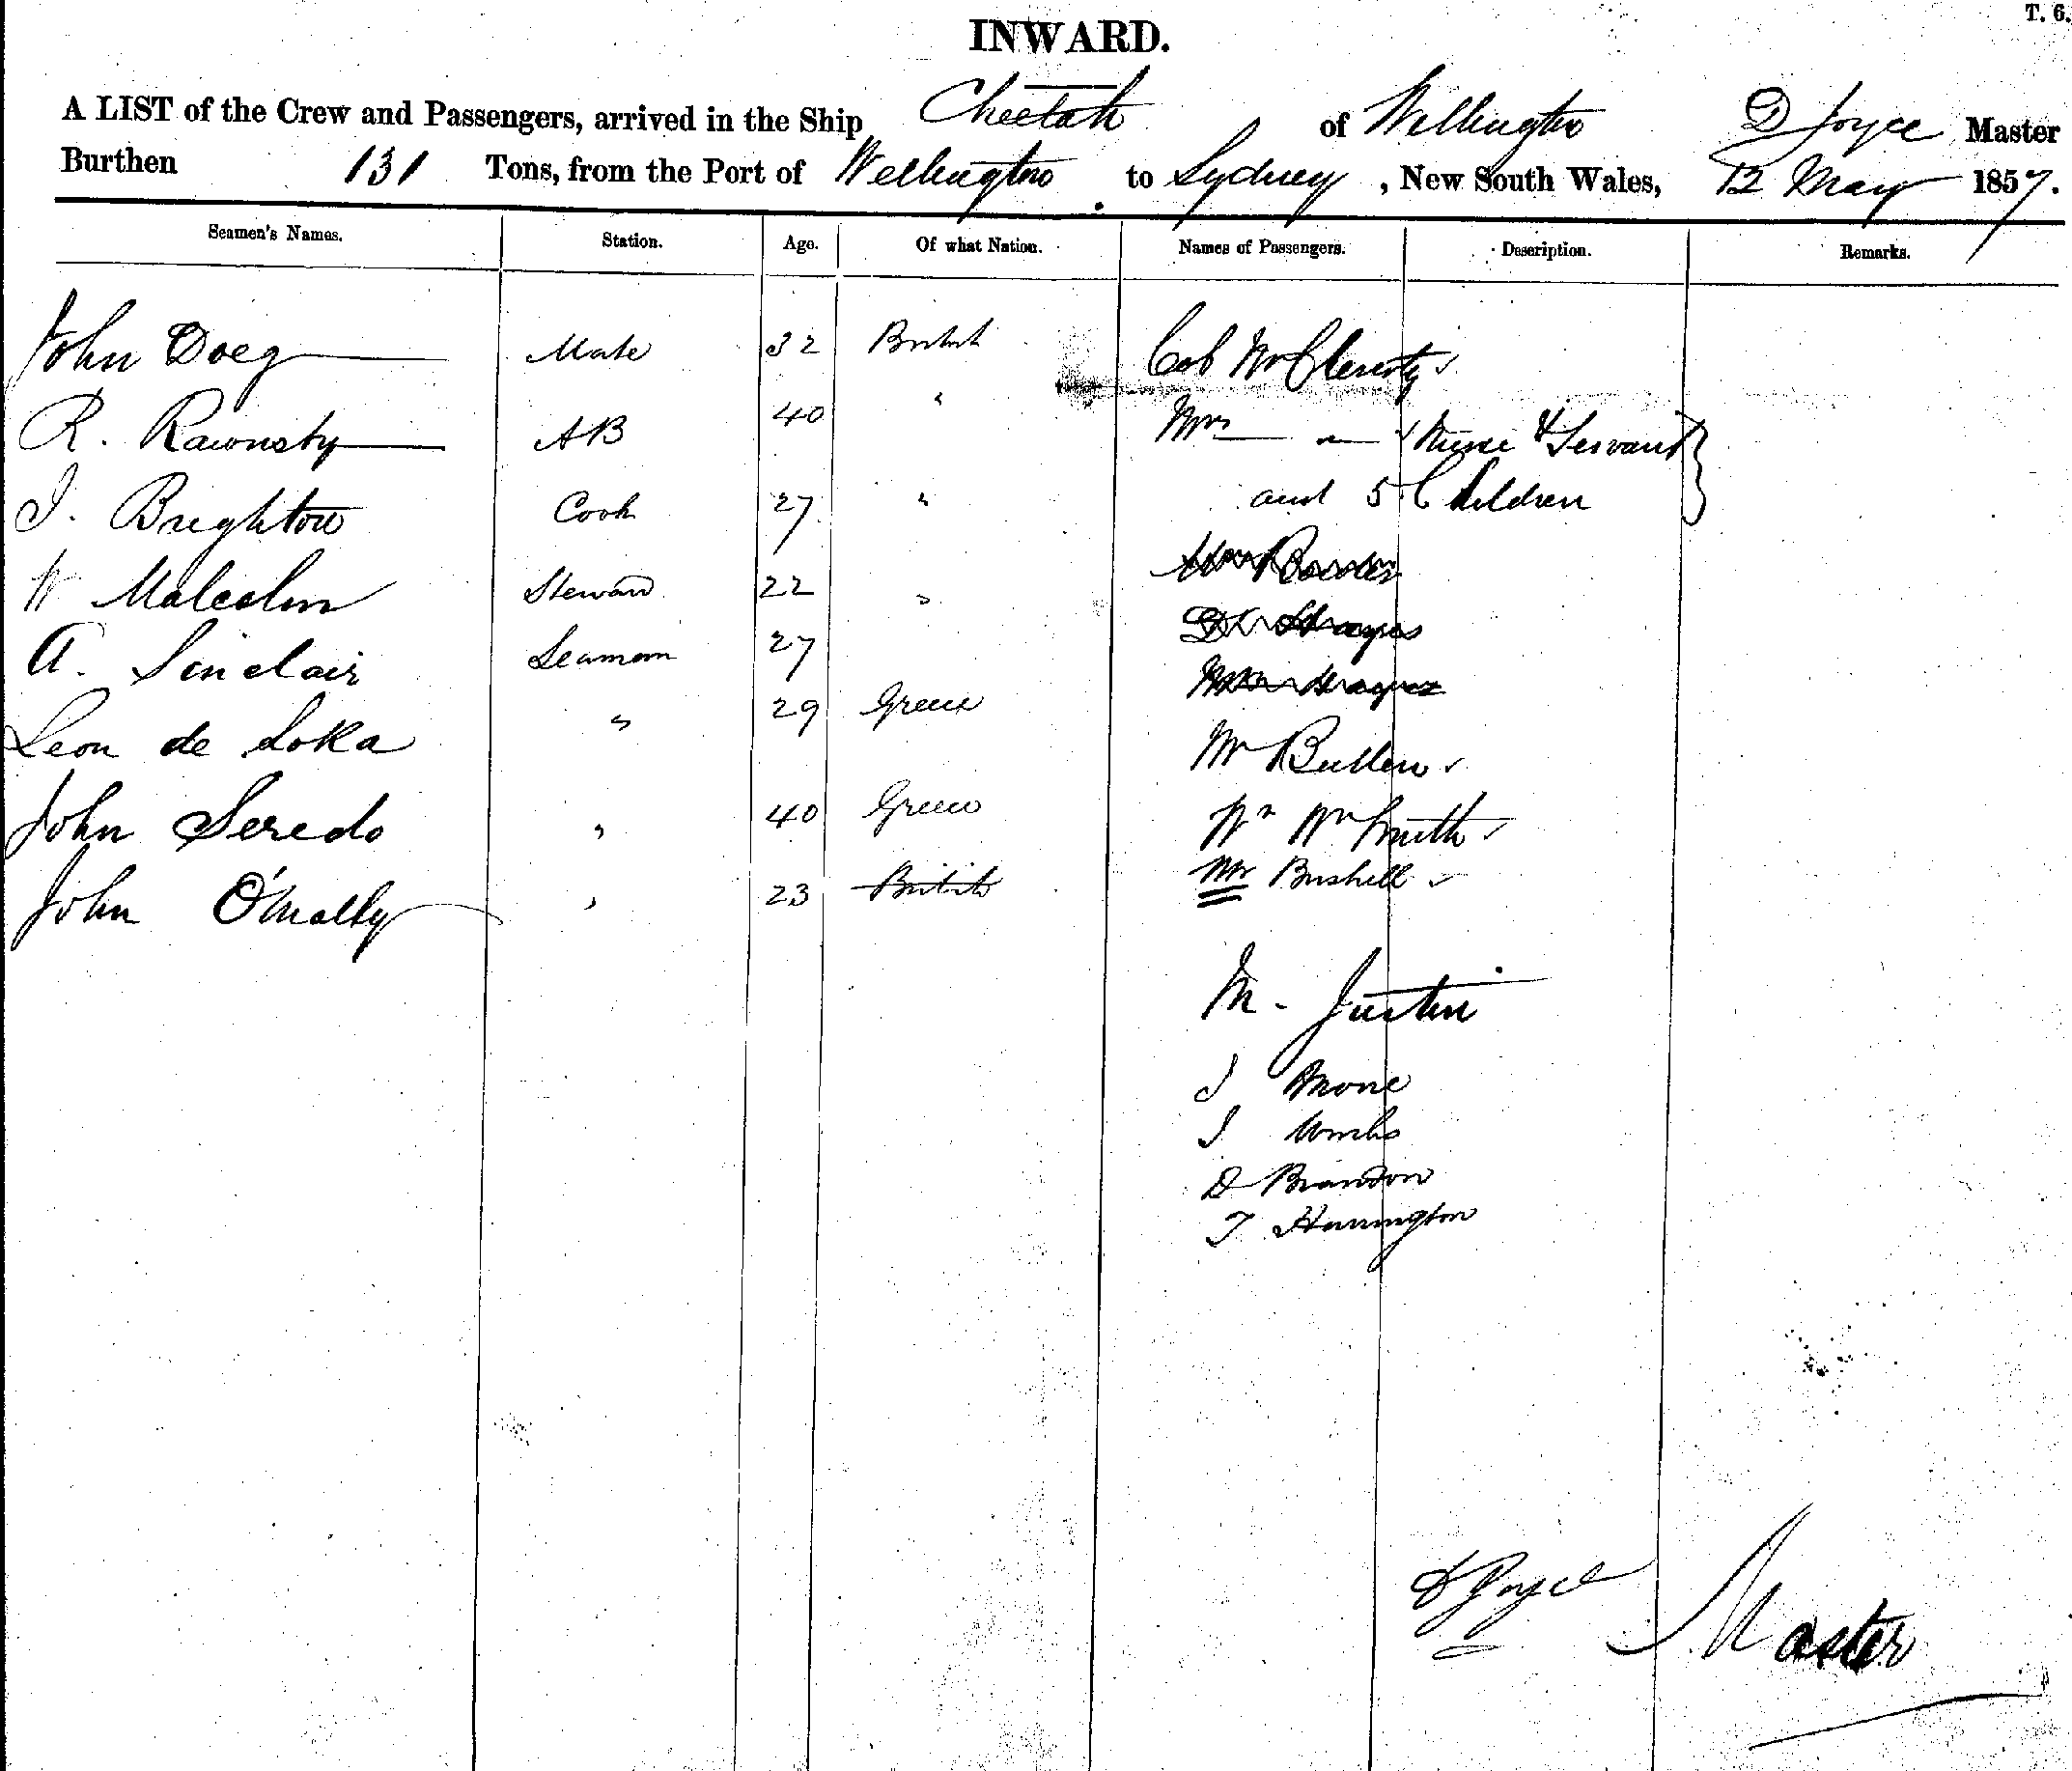 T. 6.
INWARD.
A LIST of the Crew and Passengers, arrived in the Ship Cheetah of Wellington D Joyce Master
Burthen 131 Tons, from the Port of Wellington to Sydney, New South Wales, 12 May 1857.
Seamen's Names. Station. Age. Of what Nation. Names of Passengers. Description. Remarks.
John Doeg Mate 32 British Col McCleverty
R. Rawnsly AB 40 " Mrs — " Nurse & Servant
J. Brighton Cook 27 " and 5 Children
W Malcolm Steward 22 "
A. Sinclair Seaman 27
Leon de Soka " 29 Greece Mr Bullen
John Seredo " 40 Greece Mr Wm Smith
John O'Mally " 23 British Mr Bushell
M. Justin
J Mone
J
D Brandon
T Harrington
D Joyce
Master